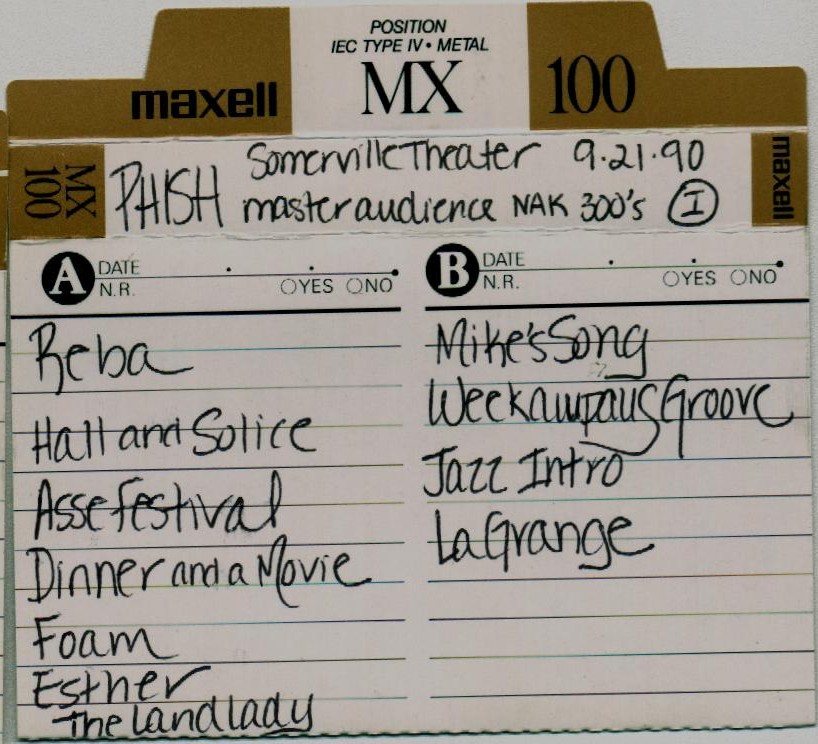 POSITION
IEC TYPE IV • METAL
maxell MX 100
MX 100
PHISH Somerville Theater 9.21.90
master audience NAK 300's I
maxell
A DATE . . .
N.R. YES NO
B DATE . . .
N.R. YES NO
Reba
Hall and Solice
Asse festival
Dinner and a Movie
Foam
Esther
The Landlady
Mike's Song
Weekawpaug Groove
Jazz Intro
LaGrange